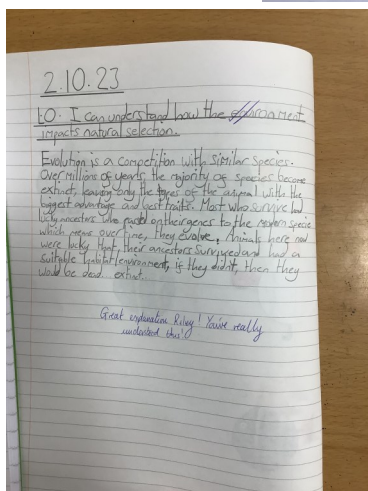 2.10.23
LO. I can understand how the environment
impacts natural selection.
Evolution is a competition with similar species.
Over millions of years, the majority of species become
extinct, leaving only the types of the animal with the
biggest advantage and best traits. Most who survive had
lucky ancestors who passed on their genes to the modern specie
which means over time, they evolve. Animals here now
were lucky that their ancestors survived and had a
suitable habitat/environment, if they didn't, then they
would be dead. extinct.
Great explanation Riley! You've really
understood this!